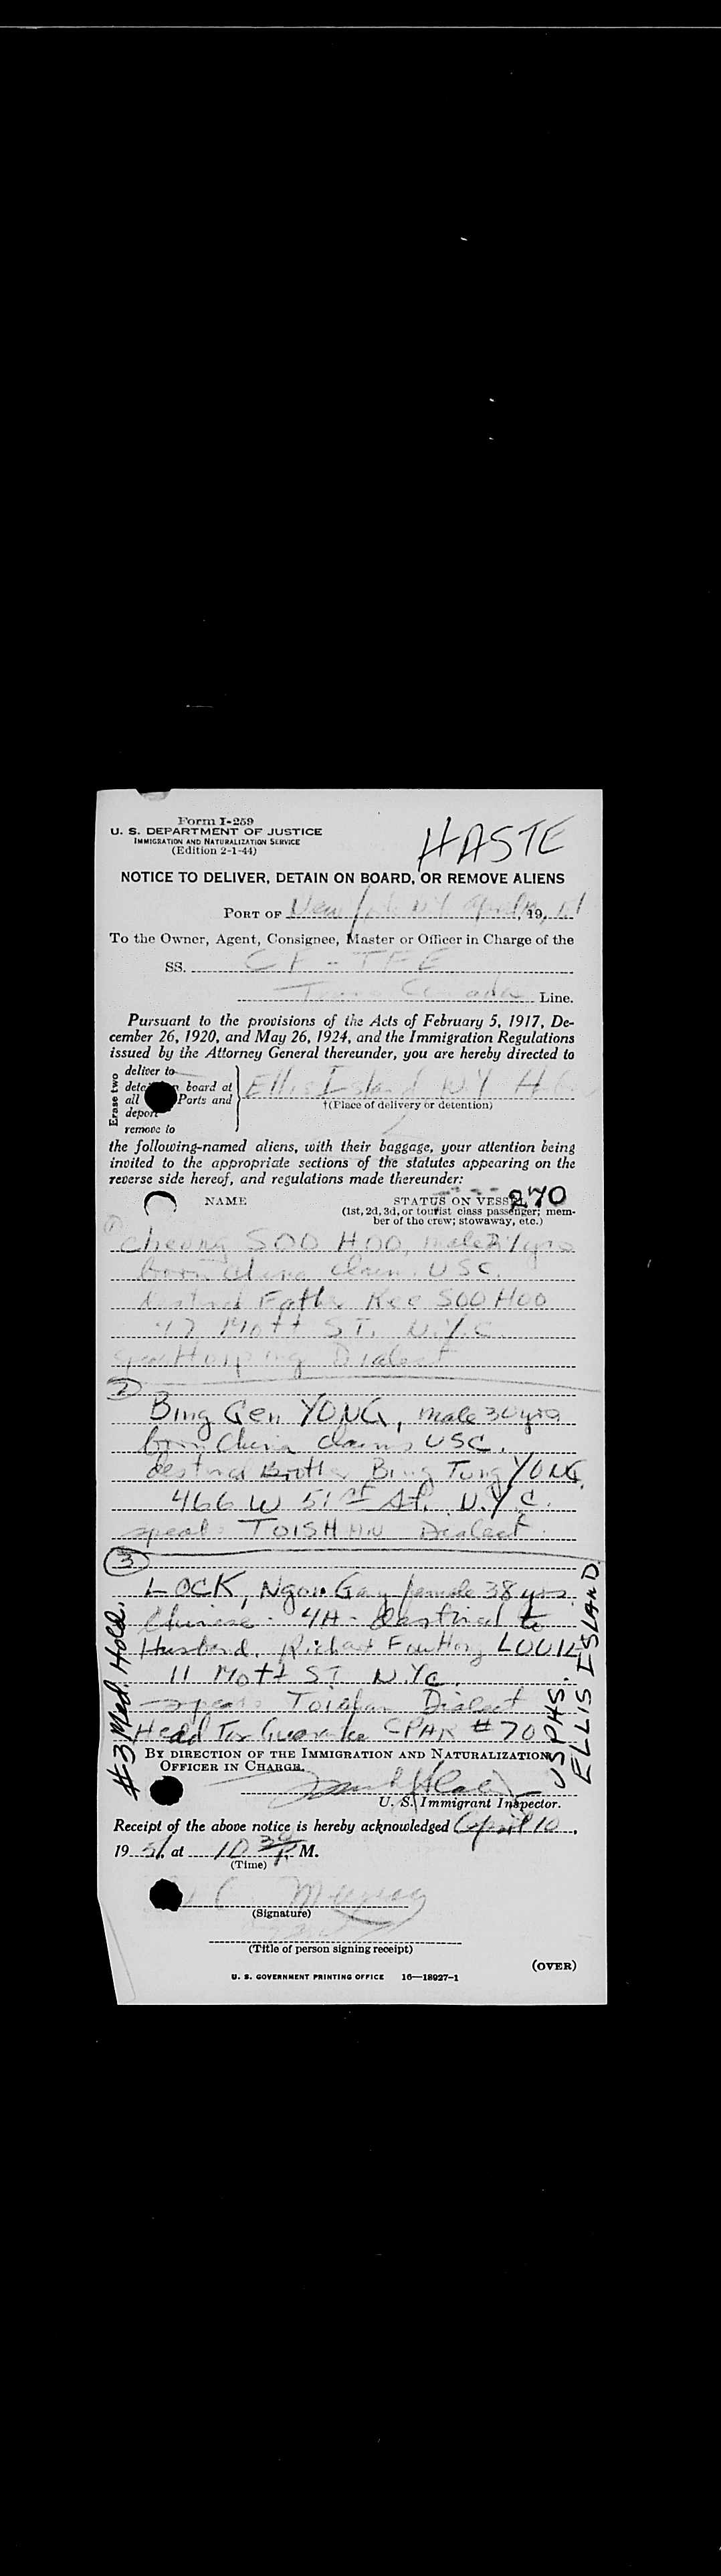 Form I-259
U. S. DEPARTMENT OF JUSTICE
IMMIGRATION AND NATURALIZATION SERVICE
(Edition 2-1-44)
HASTE
NOTICE TO DELIVER, DETAIN ON BOARD, OR REMOVE ALIENS
PORT OF New York NY April 10, 19 51
To the Owner, Agent, Consignee, Master or Officer in Charge of the
SS. CF - TFE
Trans Canada Line.
Pursuant to the provisions of the Acts of February 5, 1917, De-
cember 26, 1920, and May 26, 1924, and the Immigration Regulations
issued by the Attorney General thereunder, you are hereby directed to
Erase two
deliver to
board at
all Ports and
deport
remove to
Ellis Island NY
†(Place of delivery or detention)
the following-named aliens, with their baggage, your attention being
invited to the appropriate sections of the statutes appearing on the
reverse side hereof, and regulations made thereunder:
270
NAME STATUS ON VESSEL
(1st, 2d, 3d, or tourist class passenger; mem-
ber of the crew; stowaway, etc.)
1
Cheong SOO HOO, male 21 yrs
born China claims USC.
destined Father Kee SOO HOO
47 Mott ST. N.Y.C.
Dialect
2
Bing Gen YONG, male 30 yrs
born China claims USC.
destined Brother Bing Tung YONG
466 W 51st St. N.Y.C.
speaks TOISHAN Dialect.
3
LOCK, Ngon Gay female 38 yrs.
Chinese - 4H - destined to
Husband. Richard LOUIE
11 Mott ST N.Y.C.
speaks Toishan Dialect
Head Tax Guarantee CPAR #70
#3 Med. Hold.
US PHS.
ELLIS ISLAND
BY DIRECTION OF THE IMMIGRATION AND NATURALIZATION
OFFICER IN CHARGE.
U. S. Immigrant Inspector.
Receipt of the above notice is hereby acknowledged April 10,
19 51, at 10 30 P. M.
(Time)
(Signature)
(Title of person signing receipt)
(OVER)
U. S. GOVERNMENT PRINTING OFFICE 16—18027-1